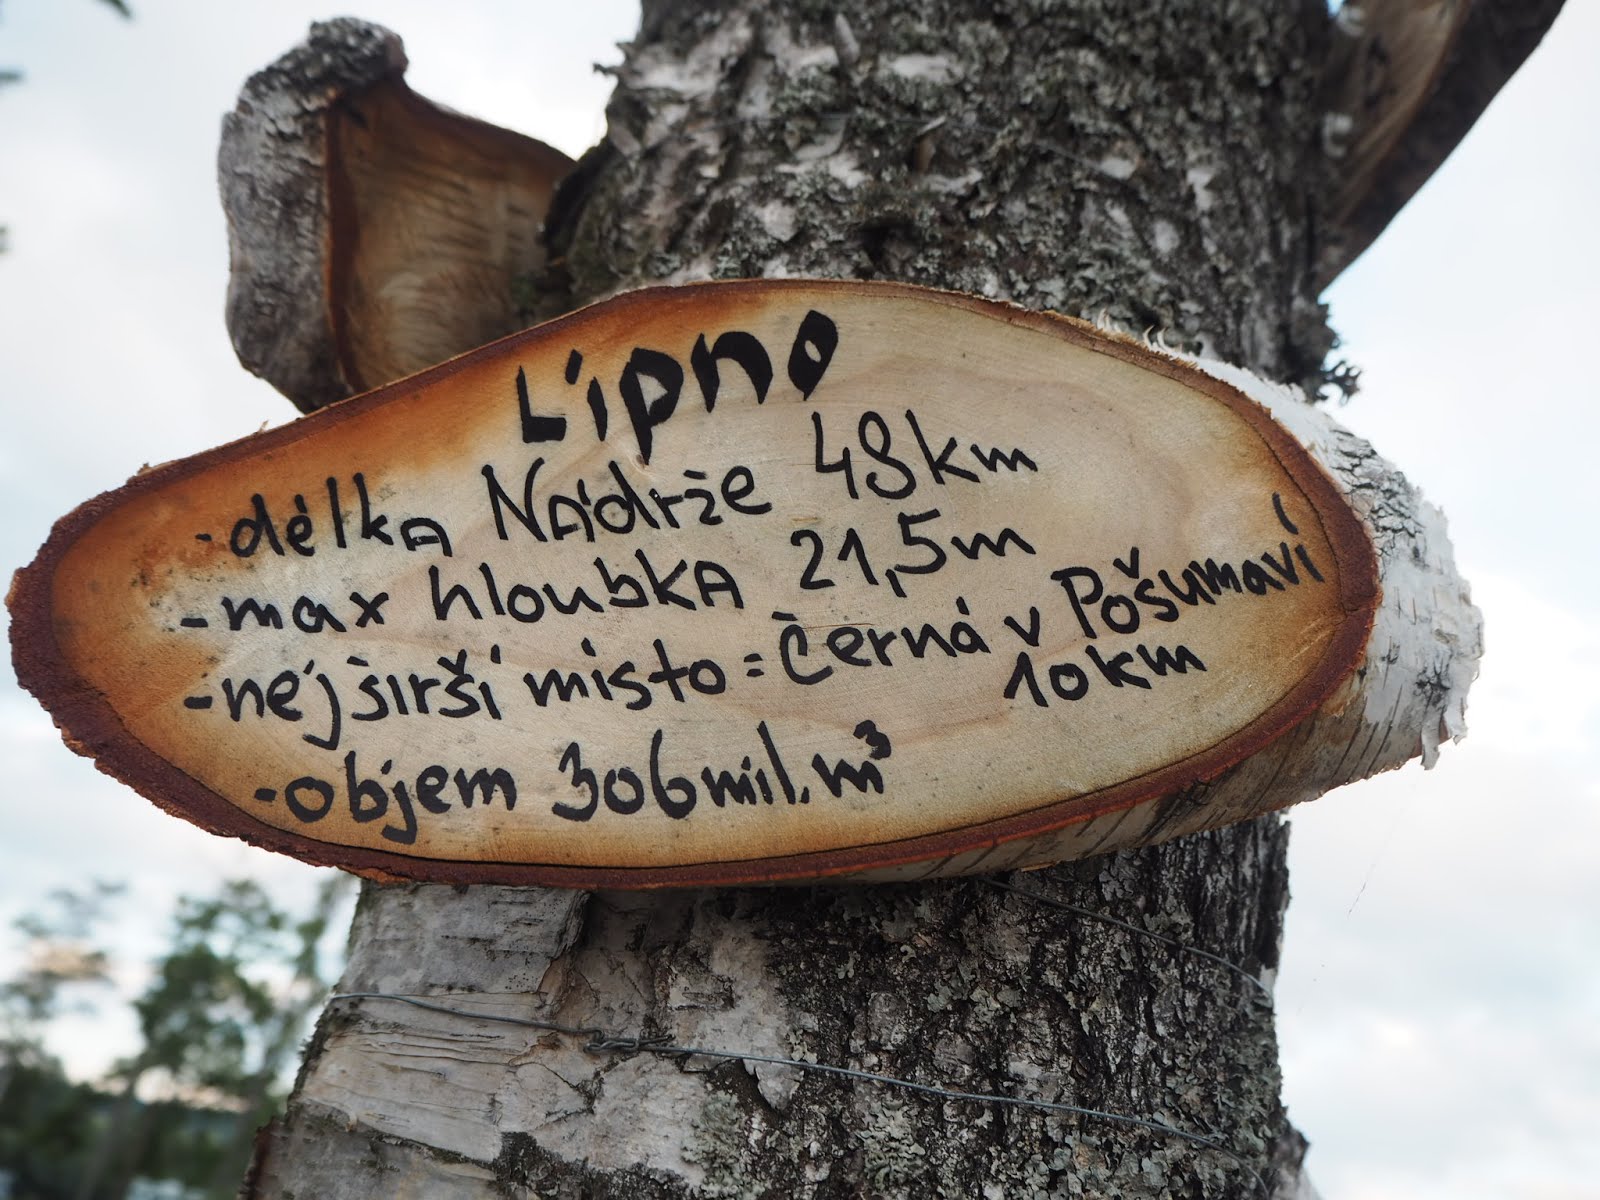 Lipno
- délka Nádrže 48km
- max hloubka 21,5m
- nejširší misto = Černá v Pošumaví
10km
- objem 306mil. m³